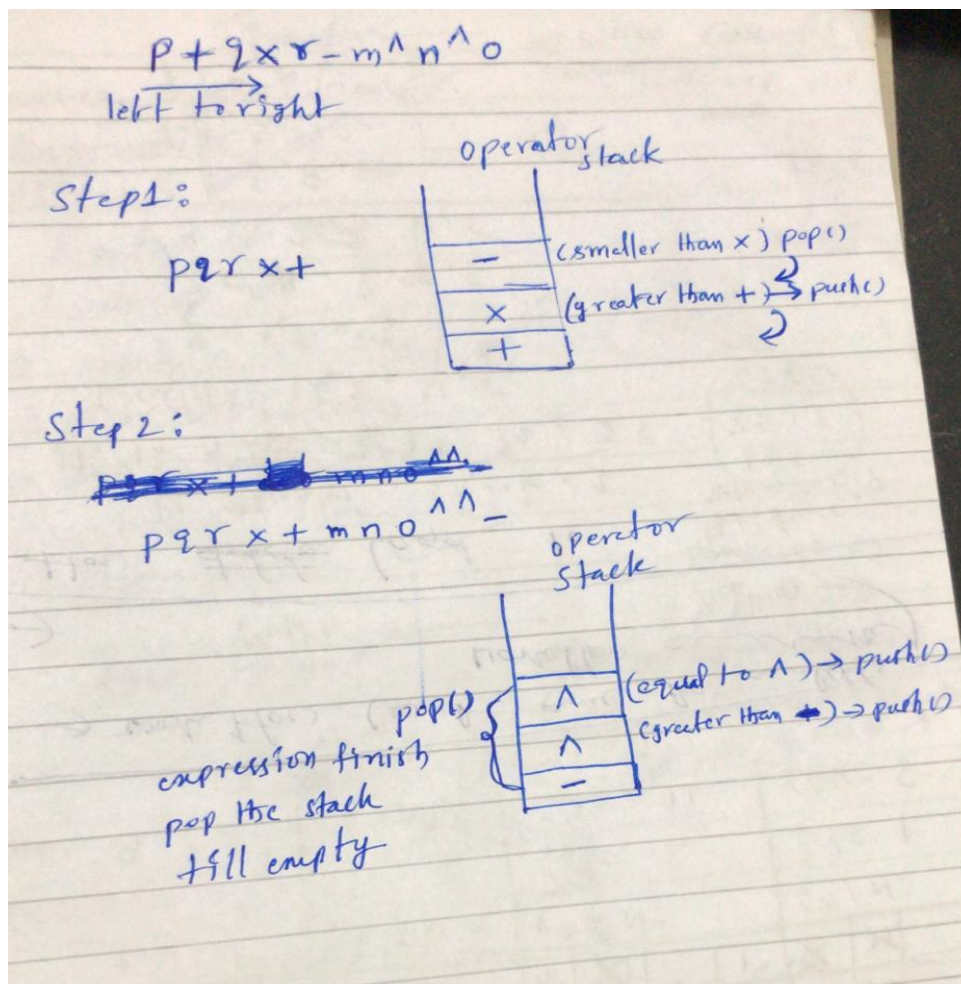 p + q x r - m ^ n ^ o
left to right
operator stack
Step1:
- (smeller than x) pop()
pqr x+
x (greater than +) → push()
+
Step 2:
pqr x + mno^^-
operetor
stack
^ (equal to ^) → push()
pop() ^ (greater than -) → push()
-
expression finish
pop the stack
till empty